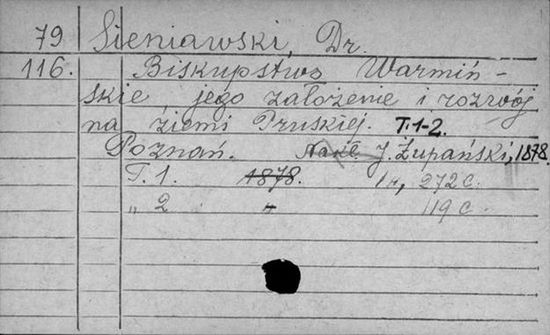 79 Sieniawski, Dr.
116. Biskupstwo Warmiń-
skie jego założenie i rozwój
na ziemi Pruskiej. T.1-2.
Poznań. Nakł. J. Żupański, 1878.
T. 1. 1878. 272 c.
„ 2 „ 119 c.